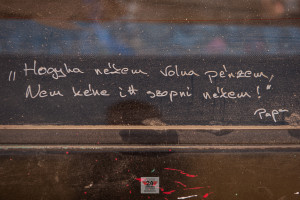 „Hogyha nékem volna pénzem,
Nem kéne itt szopni nékem!"
Papa
29